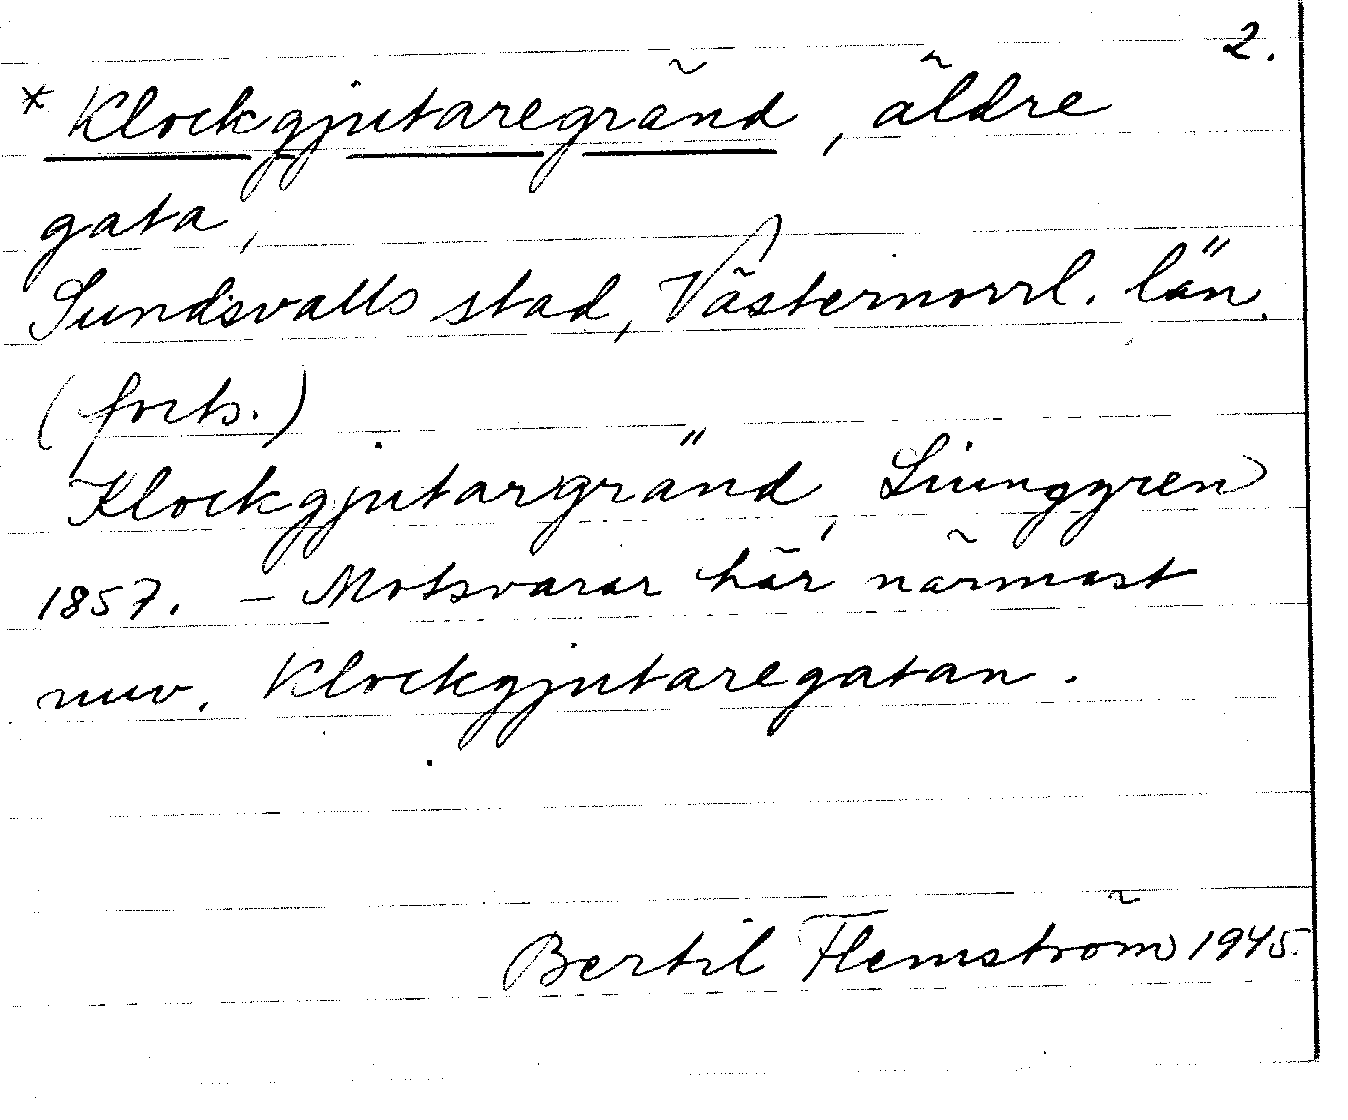 2.
* Klockgjutaregränd, äldre
gata,
Sundsvalls stad, Västernorrl. län.
(forts.)
Klockgjutargränd, Liunggren
1857. – Motsvarar här närmast
nuv. Klockgjutaregatan.
Bertil Flemström 1945.